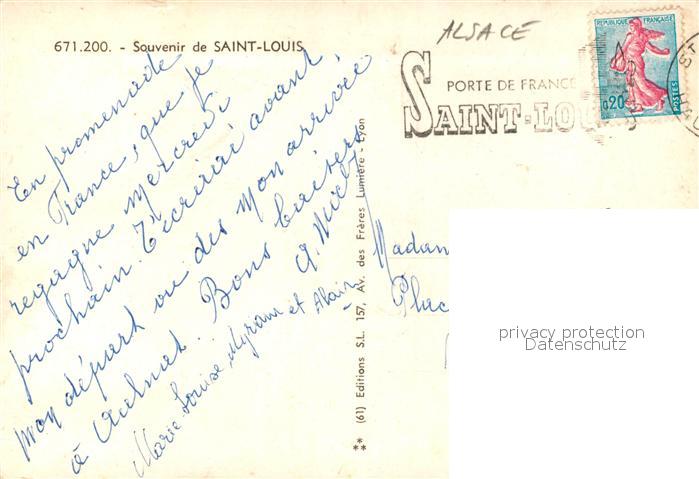 671.200. - Souvenir de SAINT-LOUIS
ALSACE
PORTE DE FRANCE
SAINT-LOU
REPUBLIQUE FRANÇAISE
0,20
POSTES
En promenade
en France, que je
regagne mercredi
prochain. T'écrirai avant
mon départ ou dès mon arrivée
à Aulnat. Bons baisers
Marie-Louise, Myriam et Alain
** (61) Editions S.L. 157, Av. des Frères Lumière - Lyon
Madam
Plac
privacy protection
Datenschutz